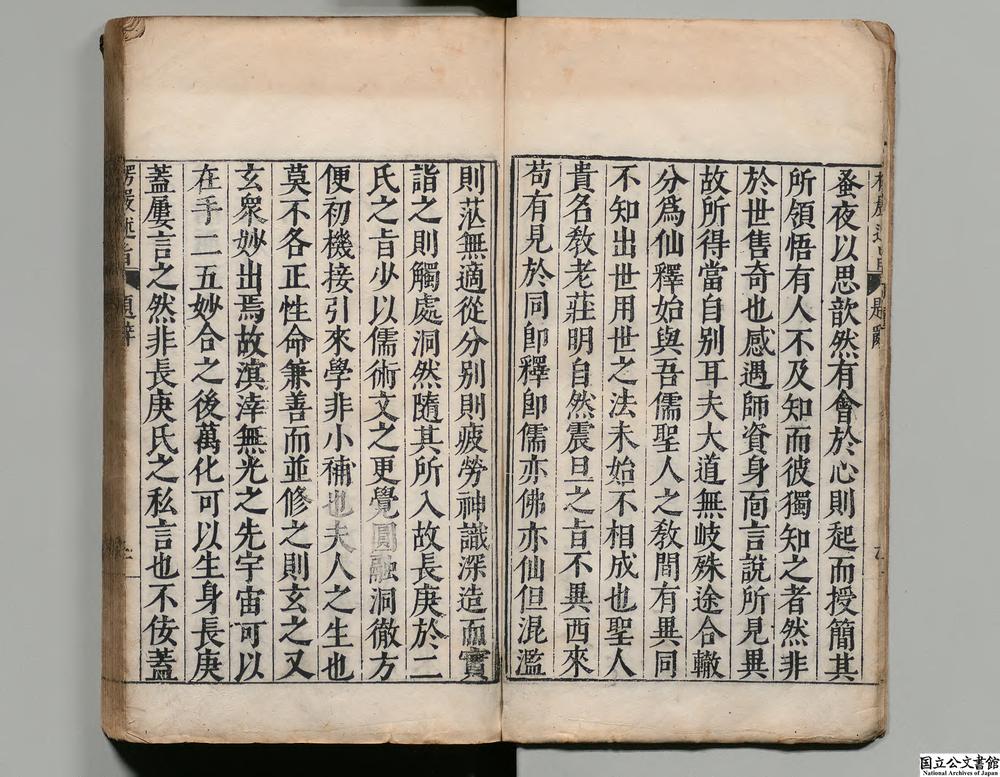 蚤夜以思歆然有會於心則起而授簡其
所領悟有人不及知而彼獨知之者然非
於世售奇也感遇師資身面言說所見異
故所得當自别耳夫大道無岐殊途合轍
分爲仙釋始與吾儒聖人之教間有異同
不知出世用世之法未始不相成也聖人
貴名教老莊明自然震旦之旨不異西來
苟有見於同卽釋卽儒亦佛亦仙但混濫
則茫無適從分别則疲勞神識深造而實
詣之則觸處洞然隨其所入故長庚於二
氏之旨少以儒術文之更覺圓融洞徹方
便初機接引來學非小補也夫人之生也
莫不各正性命兼善而並修之則玄之又
玄衆妙出焉故滇涬無光之先宇宙可以
在手二五妙合之後萬化可以生身長庚
蓋屢言之然非長庚氏之私言也不佞蓋
楞嚴述旨 題辭
国立公文書館
National Archives of Japan